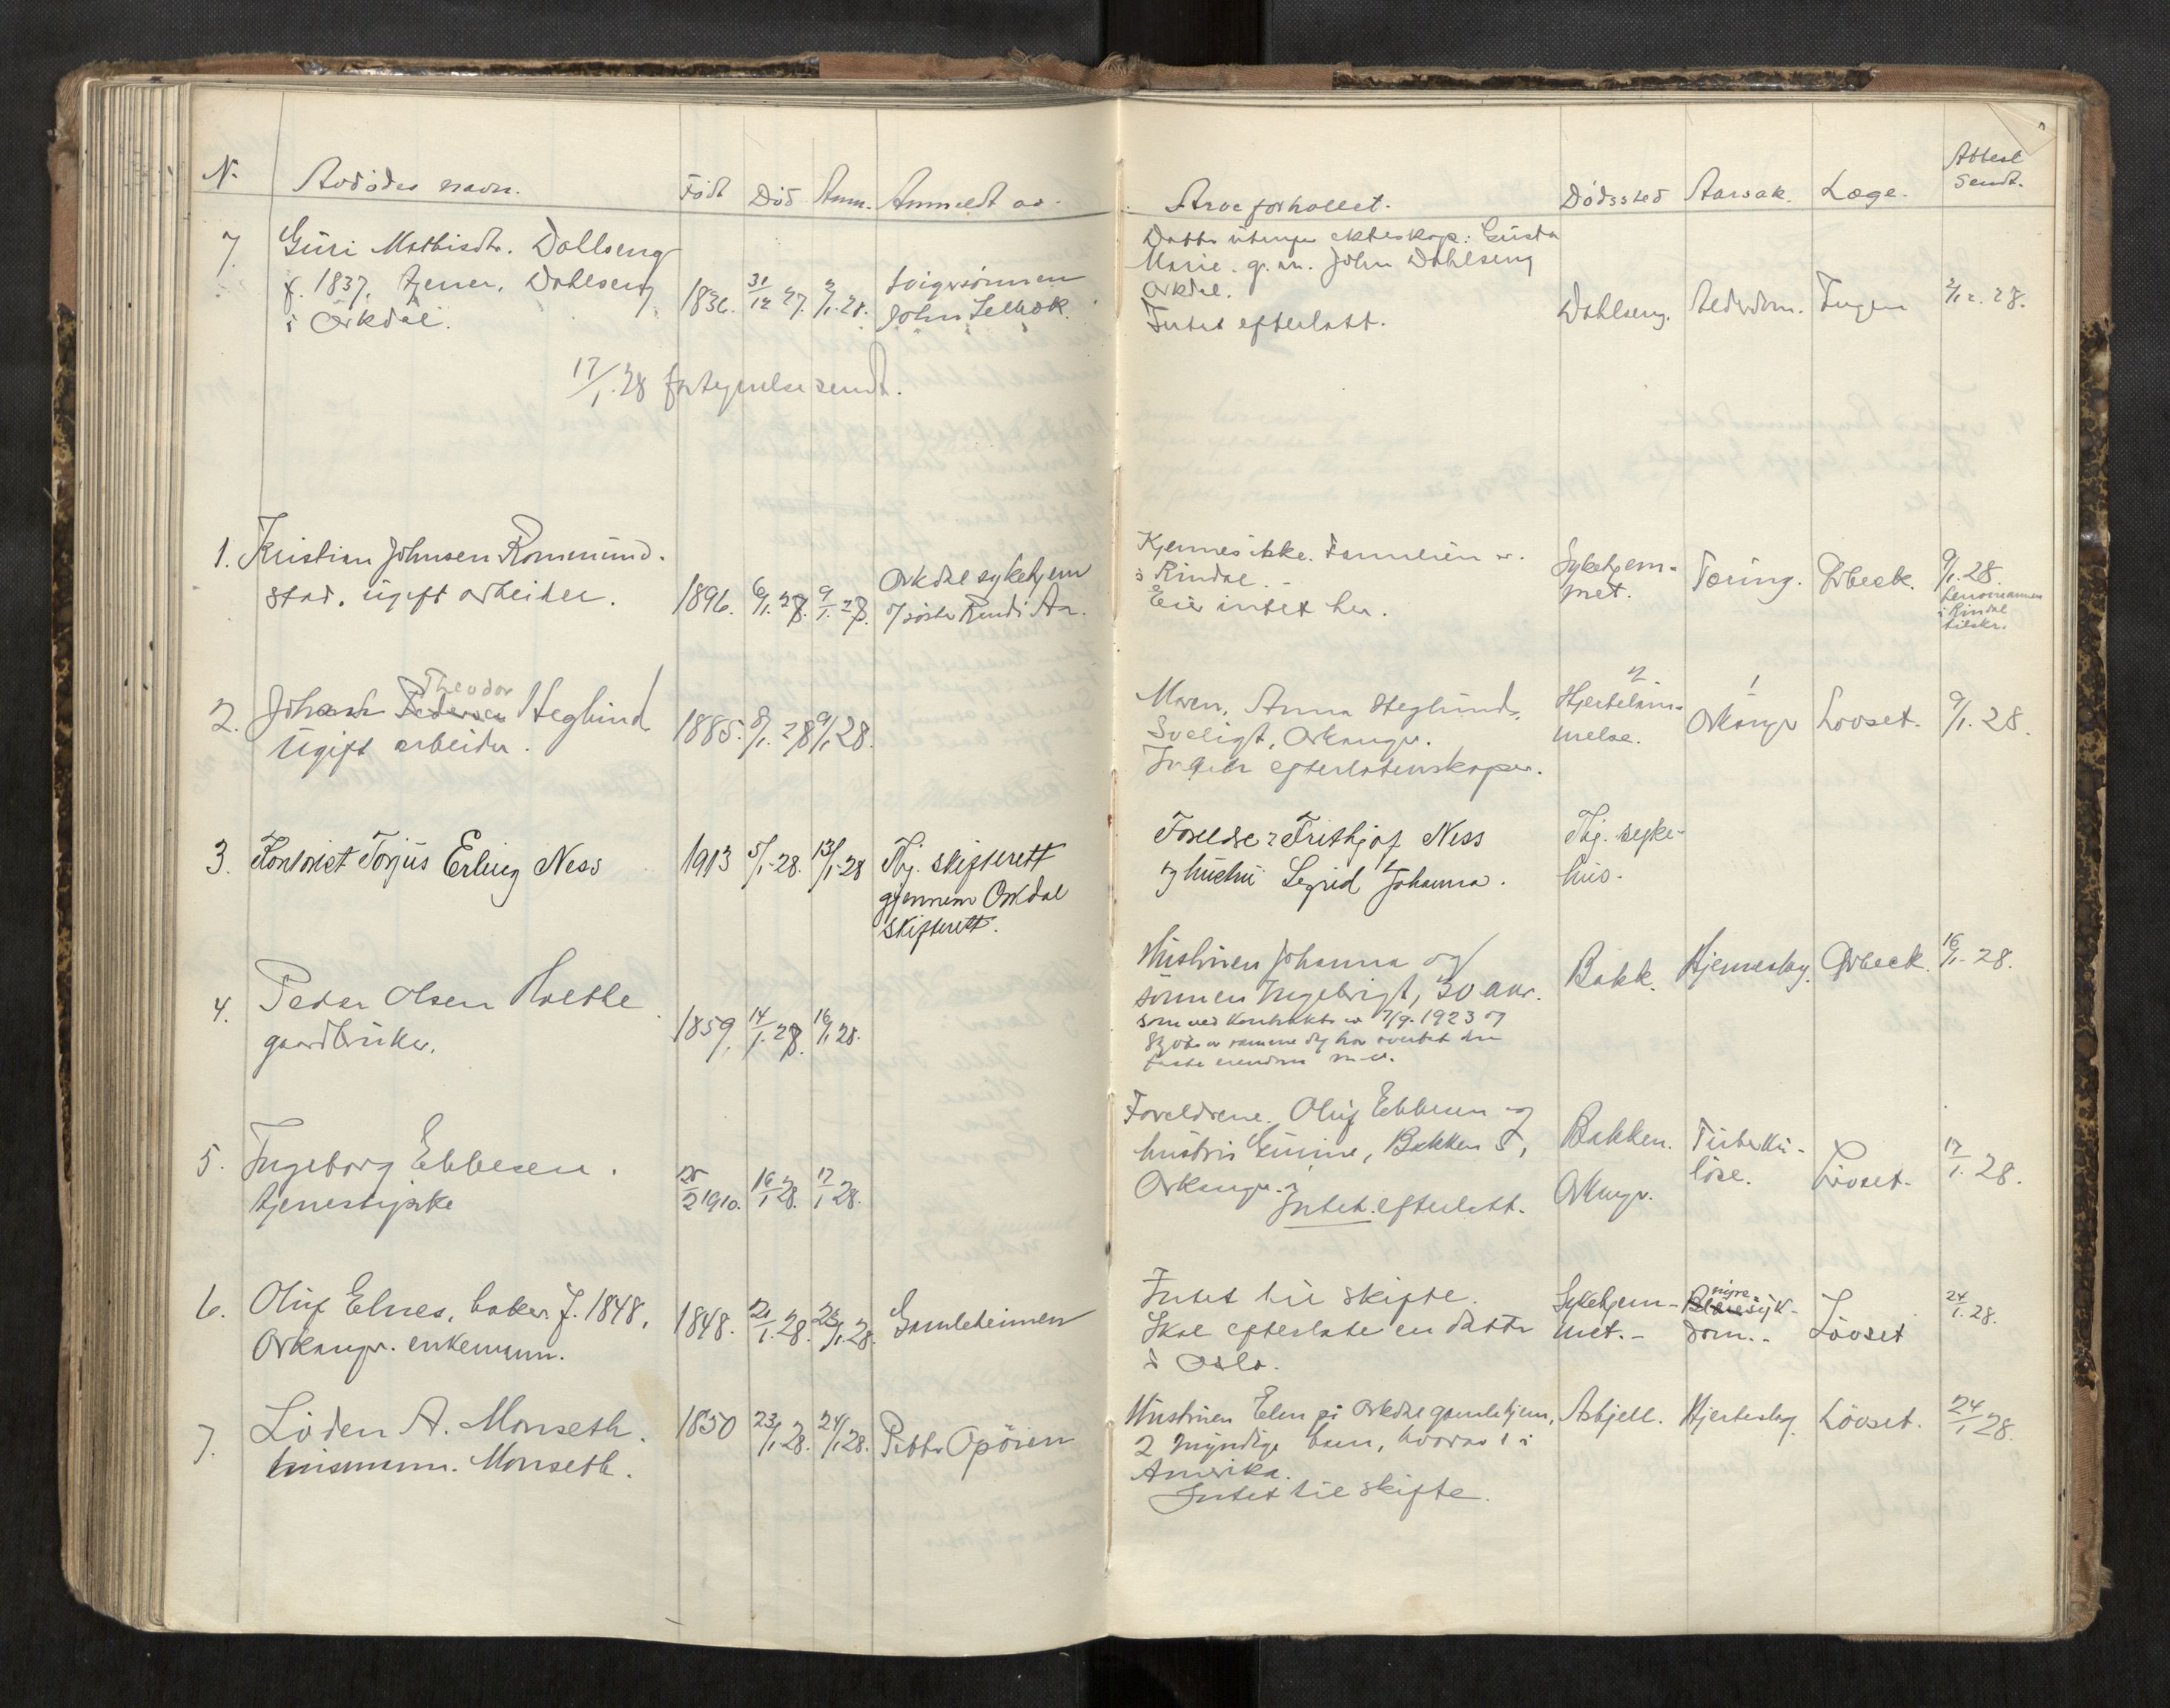 N.
Avdødes navn.
Født
Död
Anm.
Anmeldt av.
Arveforholdet.
Dödssted
Aarsak.
Læge.
Attest
sendt.
7.
Guri Mathisdtr. Dahlseng
f. 1837, tjener, Dahlseng
i Orkdal.
1836.
31/12 27.
2/1. 28.
Svigersönnen
John Selbæk.
Datter utenfor ekteskap: Gusta
Marie g. m. John Dahlseng
Orkdal.
Intet efterlatt.
Dahlseng.
Alderdom.
Ingen
2/12. 28.
17/1. 28 fortegnelse sendt.
1.
Kristian Johnsen Rommund-
stad, ugift arbeider.
1896.
6/1. 28.
9/1. 28.
Orkdal sykehjem
v/ söster Randi Aa.
Kjennes ikke. Familien er
i Rindal. -
Eier intet her.
Sykehjem-
met.
Tæring.
Orbeck.
9/1. 28.
Lensmannen
i Rindal
tilskr.
2.
Johan Theodor Heglund
Ugift arbeider.
1885.
8/1. 28
9/1 28.
Moren, Anna Heglund,
Sveligt, Orkanger.
Ingen efterlatenskaper.
Hjertelam-
melse.
Orkanger
Lovset.
9/1. 28.
3.
Kontorist Torjus Erling Ness
1913
5/1-28.
13/1-28
Thj. skifterett
gjennem Orkdal
skifterett.
Foreldre: Frithjof Ness
og hustru Sigrid Johanna.
Thj. syke-
hus.
4.
Peder Olsen Holthe
gaardbruker.
1859.
14/1. 28.
16/1 28.
Hustruen Johanna og
sönnen Ingebrigt, 30 aar.
som ved kontrakt av 7/9. 1923 og
skjöte av samme dag har overtat den
faste eiendom m. v.
Bakk.
Hjerneslag.
Orbeck.
16/1. 28.
5.
Ingeborg Ebbesen.
tjenestepike
25/2 1910.
16/1 28.
17/1 28.
Foreldrene, Oluf Ebbesen og
hustru Gurine, Bakken 5,
Orkanger.
Intet efterlatt.
Bakken.
Orkanger.
Tuberku-
löse.
Lövset.
17/1. 28.
6.
Oluf Elnes, baker f. 1848,
Orkanger. enkemann.
1848.
21/1. 28.
23/1. 28.
Gamleheimen
Intet til skifte.
Skal efterlate en datter
i Oslo.
Sykehjem-
met. -
nyre
syk-
dom. -
Lövset
24/1. 28.
7.
Loden A. Monseth.
husmann. Monseth.
1850
23/1. 28.
24/1. 28.
Petter Opöien
Hustruen Elen på Orkdal gamlehjem,
2 myndige barn, hvorav 1 i
Amerika.
Intet til skifte.
Asbjell.
Hjerteslag.
Lövset.
24/1 28.